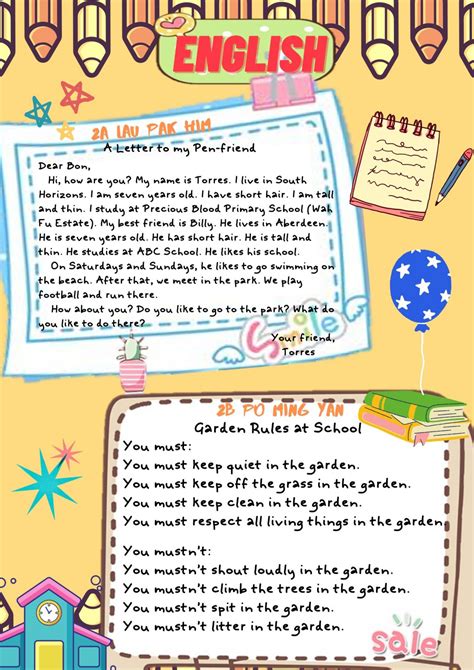 ENGLISH
2A LAU PAK HIM
A Letter to my Pen-friend
Dear Bon,
Hi, how are you? My name is Torres. I live in South
Horizons. I am seven years old. I have short hair. I am tall
and thin. I study at Precious Blood Primary School (Wah
Fu Estate). My best friend is Billy. He lives in Aberdeen.
He is seven years old. He has short hair. He is tall and
thin. He studies at ABC School. He likes his school.
On Saturdays and Sundays, he likes to go swimming on
the beach. After that, we meet in the park. We play
football and run there.
How about you? Do you like to go to the park? What do
you like to do there?
Smile
Your friend,
Torres
2B PO MING YAN
Garden Rules at School
You must:
You must keep quiet in the garden.
You must keep off the grass in the garden.
You must keep clean in the garden.
You must respect all living things in the garden
You mustn't:
You mustn't shout loudly in the garden.
You mustn't climb the trees in the garden.
You mustn't spit in the garden.
You mustn't litter in the garden.
sale